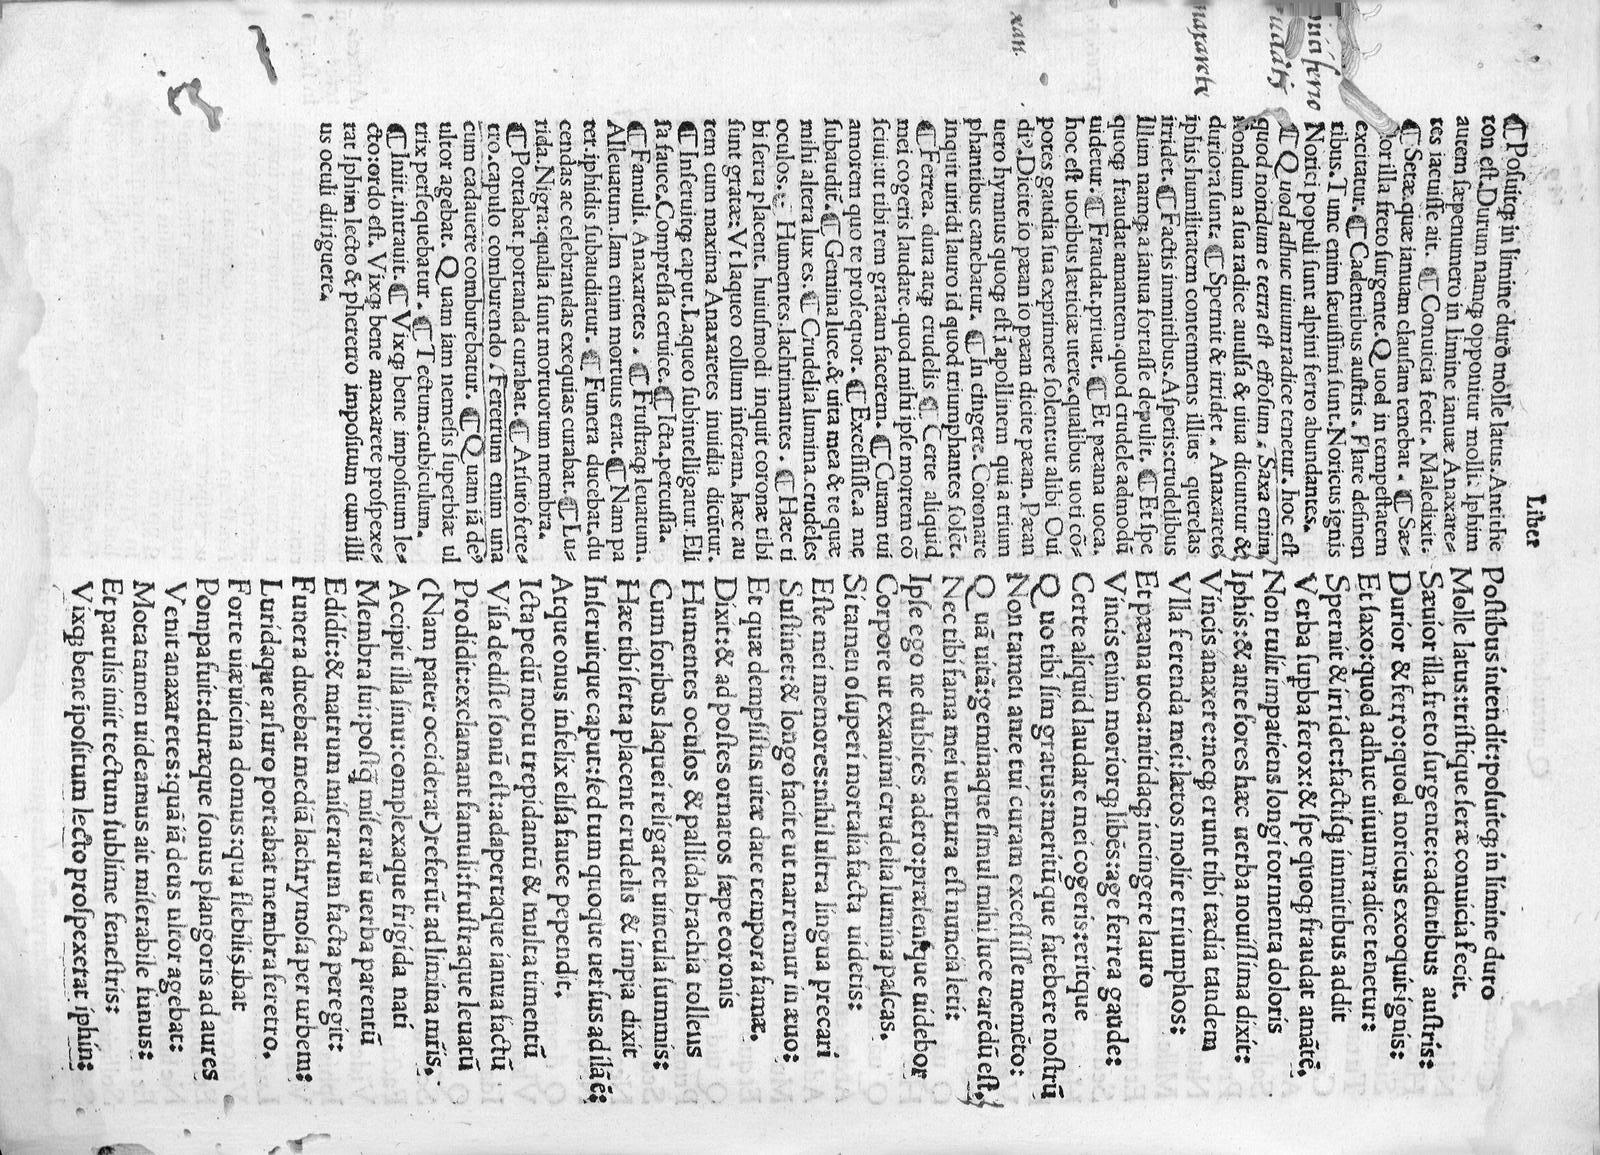 Liber
Poſtibus intendit: poſuitq; in limine duro
Molle latus: triſtique ſeræ conuicia fecit.
Sæuior illa freto ſurgente: cadétibus auſtris:
Durior & ferro: quod noricus excoquit ignis:
Et ſaxo: quod adhuc uiuum radice tenetur:
Spernit & irridet: factiſq; immitibus addit
Verba ſupba ferox: & ſpe quoq; fraudat amãtẽ.
Non tulit impatiens longi tormenta doloris
Iphis: & ante fores hæc uerba nouiſſima dixit:
Vincis anaxere: neq; erunt tibi tædia tandem
Vlla ferenda mei: lætos molire triumphos:
Et pæana uoca: nitidaq; incingere lauro
Vincis enim moriorq; libẽs: age ferrea gaude:
Certe aliquid laudare mei cogeris: eritque
Quo tibi ſim gratus: meritũ que fatebere noſtrũ
Non tamen ante tui curam exceſſiſſe memẽto:
Quã uitã: geminaque ſimul mihi luce carẽdũ eſt.
Nec tibi fama mei uentura eſt nuncia leti:
Ipſe ego ne dubites adero: præſenque uidebor
Corpore ut exanimi crudelia lumina paſcas.
Si tamen o ſuperi mortalia facta uidetis:
Eſte mei memores: nihil ultra lingua precari
Suſtinet: & longo facite ut narremur in æuo:
Et quæ dempſiſtis uitæ date tempora famæ.
Dixit: & ad poſtes ornatos ſæpe coronis
Humentes oculos & pallida brachia tollens
Cum foribus laquei religaret uincula ſummis:
Hæc tibi ſerta placent crudelis & impia dixit
Inſeruitque caput: ſed tum quoque uerſus ad illã ẽ:
Atque onus infelix eliſa fauce pependit.
Icta pedũ motu trepidantũ & multa timentũ
Viſa dediſſe ſonũ eſt: adapertaque ianua factũ
Prodidit: exclamant famuli: fruſtraque leuatũ
(Nam pater occiderat) referũt ad limina mr̃is.
Accipit illa ſinu: complexaque frigida nati
Membra ſui: poſtq̃ miſerarũ uerba parentũ
Edidit: & matrum miſerarum facta peregit:
Funera ducebat mediã lachrymoſa per urbem:
Luridaque arſuro portabat membra feretro.
Forte uiæ uicina domus: qua flebilis ibat
Pompa fuit: duræque ſonus plangoris ad aures
Venit anaxaretes: quã iã deus ultor agebat:
Mota tamen uideamus ait miſerabile funus:
Et patulis iniit tectum ſublime feneſtris:
Vixq; bene ipoſitum lecto proſpexerat iphin:
¶ Poſuitq; in limine duro molle latus. Antithe
ton eſt. Durum namq; opponitur molli. Iphim
autem ſæpenumero in limine ianuæ Anaxare⸗
tes iacuiſſe ait. ¶ Conuicia fecit. Maledixit.
¶ Seræ. quæ ianuam clauſam tenebat. ¶ Sæ⸗
uior illa freto ſurgente. Quod in tempeſtatem
excitatur. ¶ Cadentibus auſtris. Flare deſinen
tibus. Tunc enim ſæuiſſimi ſunt. Noricus ignis
Norici populi ſunt alpini ferro abundantes.
¶ Quod adhuc uiuum radice tenetur. hoc eſt
quod nondum e terra eſt effoſum. Saxa enim
nondum a ſua radice auulſa & uiua dicuntur &
duriora ſunt. ¶ Spernit & irridet. Anaxarete
iphis humilitatem contemnens illius querelas
irridet. ¶ Factis immitibus. Aſperis: crudelibus
Illum namq; a ianua fortaſſe depulit. ¶ Et ſpe
quoq; fraudat amantem. quod crudele admodũ
uidetur. ¶ Fraudat. priuat. ¶ Et pæana uoca.
hoc eſt uocibus læticiæ utere. qualibus uoti cõ⸗
potes gaudia ſua exprimere ſolent: ut alibi Oui
diꝰ. Dicite io pæan io pæan dicite pæan. Pæan
uero hymnus quoq; eſt ĩ apollinem qui a trium
phantibus canebatur. ¶ In cingere. Coronare
inquit uiridi lauro id quod triumphantes ſolẽt.
¶ Ferrea. dura atq; crudelis ¶ Certe aliquid
mei cogeris laudare. quod mihi ipſe mortem cõ
ſciui: ut tibi rem gratam facerem. ¶ Curam tui
amorem quo te proſequor. ¶ Exceſſiſſe. a me
ſubaudit. ¶ Gemina luce. & uita mea & te quæ
mihi altera lux es. ¶ Crudelia lumina. crudeles
oculos. Humentes. lachrimantes. ¶ Hæc ti
bi ſerta placent. huiuſmodi inquit coronæ tibi
ſunt gratæ: Vt laqueo collum inſeram. hæc au
tem cum maxima Anaxaretes inuidia dicũtur.
¶ Inſeruitq; caput. Laqueo ſubintelligatur. Eli
ſa fauce. Compreſſa ceruice. ¶ Icta. percuſſa.
¶ Famuli. Anaxaretes. ¶ Fruſtraq; leuatum.
Alleuatum. Iam enim mortuus erat. ¶ Nam pa
ter. iphidis ſubaudiatur. ¶ Funera ducebat. du
cendas ac celebrandas exequias curabat. ¶ Lu⸗
rida. Nigra: qualia ſunt mortuorum membra.
¶ Portabat portanda curabat. ¶ Arſuro fere⸗
tro. capulo comburendo. Feretrum enim una
cum cadauere comburebatur. ¶ Quam iã de⸗
ultor agebat. Quam iam nemeſis ſuperbiæ ul
trix perſequebatur. ¶ Tectum: cubiculum.
¶ Iniit. intrauit. ¶ Vixq; bene impoſitum le⸗
cto: ordo eſt. Vixq; bene anaxarete proſpexe⸗
rat Iphim lecto & pheretro impoſitum cum illi
us oculi diriguere.